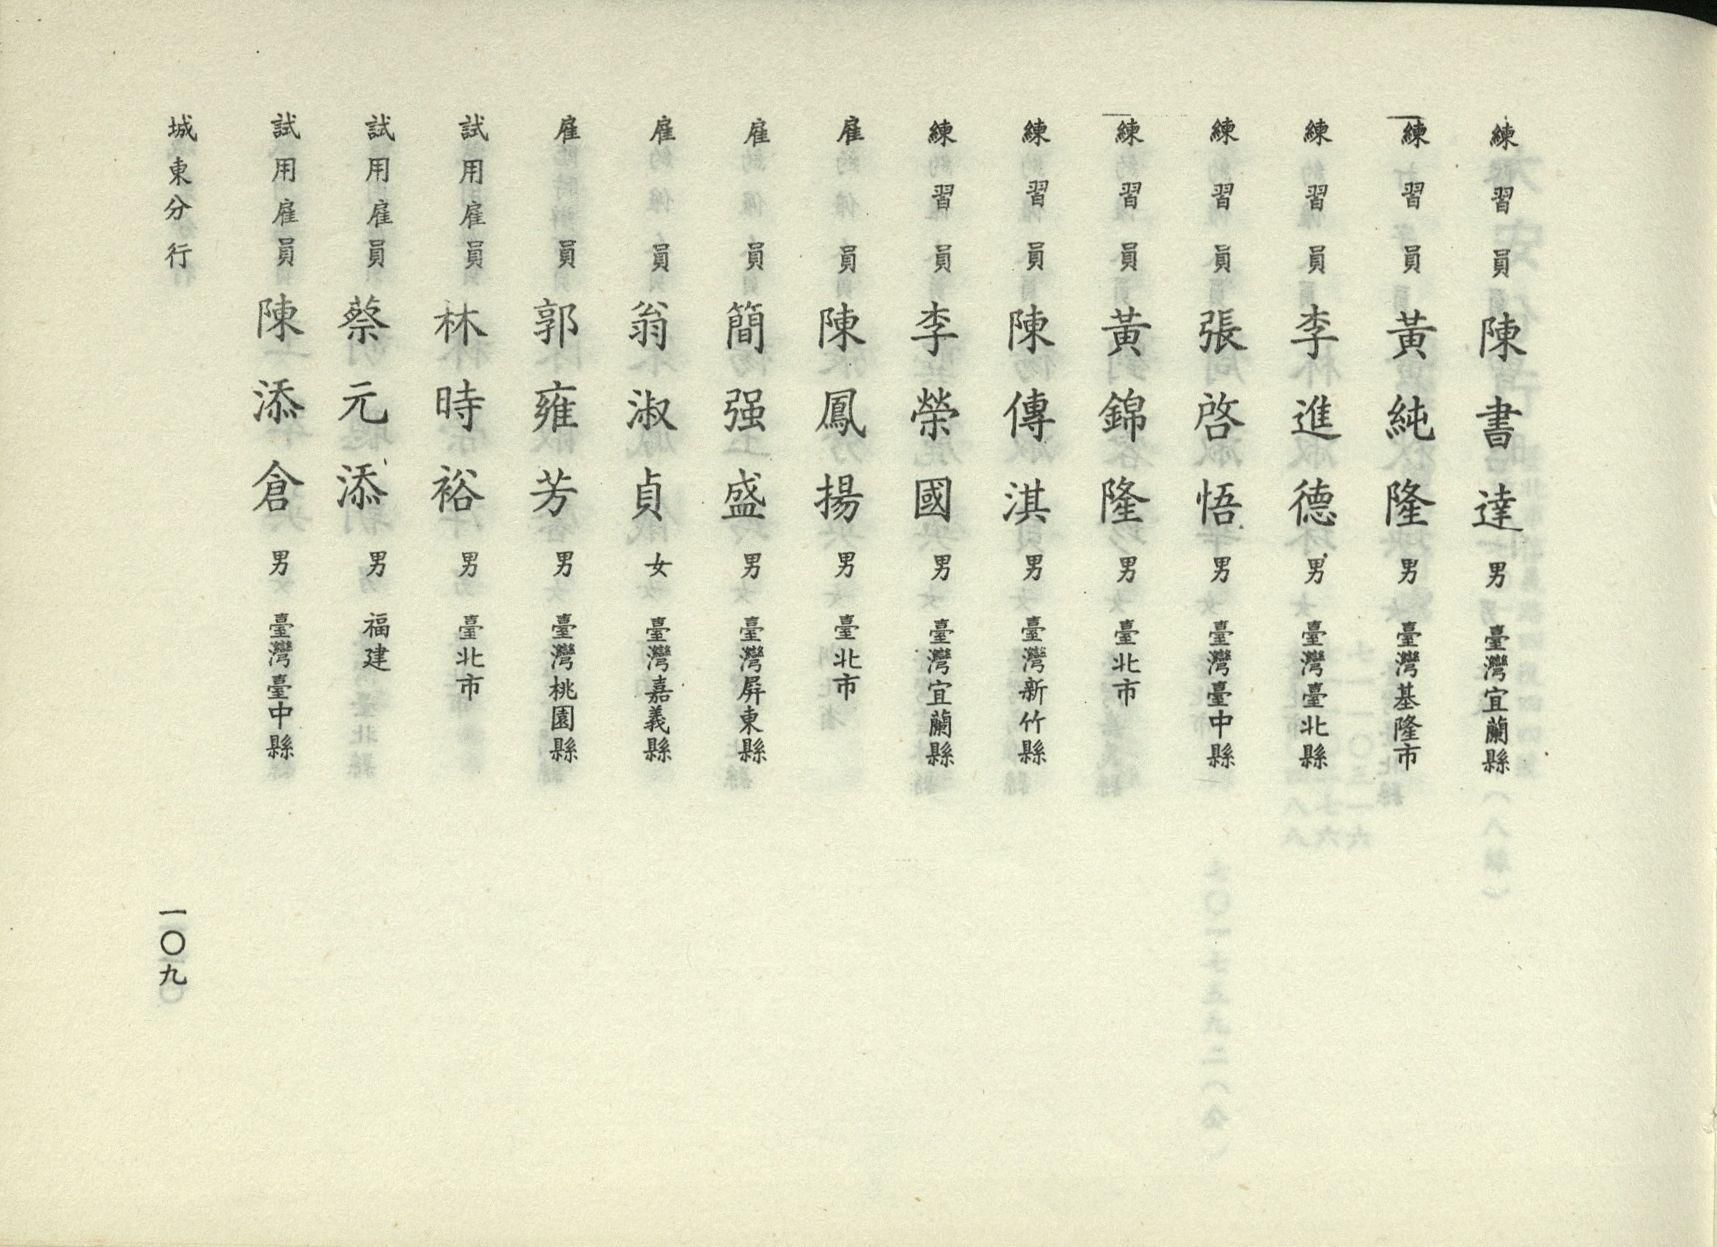 練習員 陳書達 男 臺灣宜蘭縣
練習員 黃純隆 男 臺灣基隆市
練習員 李進德 男 臺灣臺北縣
練習員 張啓悟 男 臺灣臺中縣
練習員 黃錦隆 男 臺北市
練習員 陳傳淇 男 臺灣新竹縣
練習員 李榮國 男 臺灣宜蘭縣
雇員 陳鳳揚 男 臺北市
雇員 簡强盛 男 臺灣屏東縣
雇員 翁淑貞 女 臺灣嘉義縣
雇員 郭雍芳 男 臺灣桃園縣
試用雇員 林時裕 男 臺北市
試用雇員 蔡元添 男 福建
試用雇員 陳添倉 男 臺灣臺中縣
城東分行
一〇九